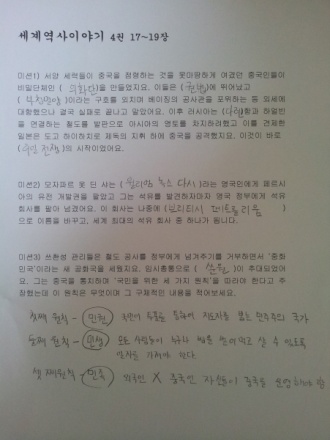 세계역사이야기 4권 17~19장
미션1) 서양 세력들이 중국을 점령하는 것을 못마땅하게 여겼던 중국민들이
비밀단체인 ( 의화단 )을 만들었지요. 이들은 ( 권법 )에 뛰어났고
( 부청멸양 )이라는 구호를 외치며 베이징의 공사관을 포위하는 등 외세에
대항했으나 결국 실패로 끝나고 말았어요. 이후 러시아는 (다롄)항과 하얼빈
을 연결하는 철도를 발판으로 아시아의 영토를 차지하려했고 이를 견제한
일본은 도고 하이하치로 제독의 지휘 하에 중국을 공격했지요. 이것이 바로
( 전쟁 )의 시작이었어요.
미션2) 모자파르 옷 단 샤는 ( 윌리엄 녹스 다시 )라는 영국인에게 페르시
아의 유전 개발권을 팔았고 그는 석유를 발견하자마자 영국 정부에게 석유
회사를 팔아 넘겼어요. 이 회사는 나중에 (브리티시 페트롤리움 )
으로 이름을 바꾸고, 세계 최대의 석유 회사 중 하나가 됩니다.
미션3) 쓰촨성 관리들은 철도 공사를 정부에게 넘겨주기를 거부하면서 '중화
민국'이라는 새 공화국을 세웠지요. 임시총통으로 ( 쑨원 )이 추대되었어
요. 그는 중국을 통치하며 '국민을 위한 세 가지 원칙'을 따라야 한다고 주
장했는데 이 원칙은 무엇이며 그 구체적인 내용을 적어보세요.
첫째 원칙 - 민권 국민이 투표로 지도자를 뽑는 민주주의 국가
둘째 원칙 - 민생 모든 사람들이 누구나 벌어먹고 살 수 있도록
일자리를 가져야 한다
셋째원칙 - 민족 외국인 X 중국인 자신들이 중국을